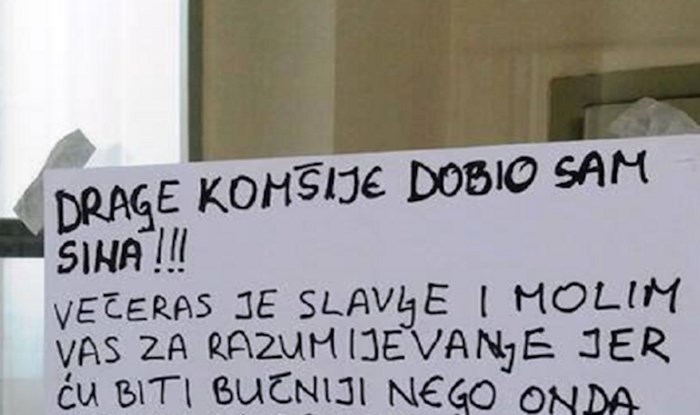 DRAGE KOMŠIJE DOBIO SAM
SINA!!!
VEČERAS JE SLAVJE I MOLIM
VAS ZA RAZUMIJEVANJE JER
ĆU BITI BUČNIJI NEGO ONDA